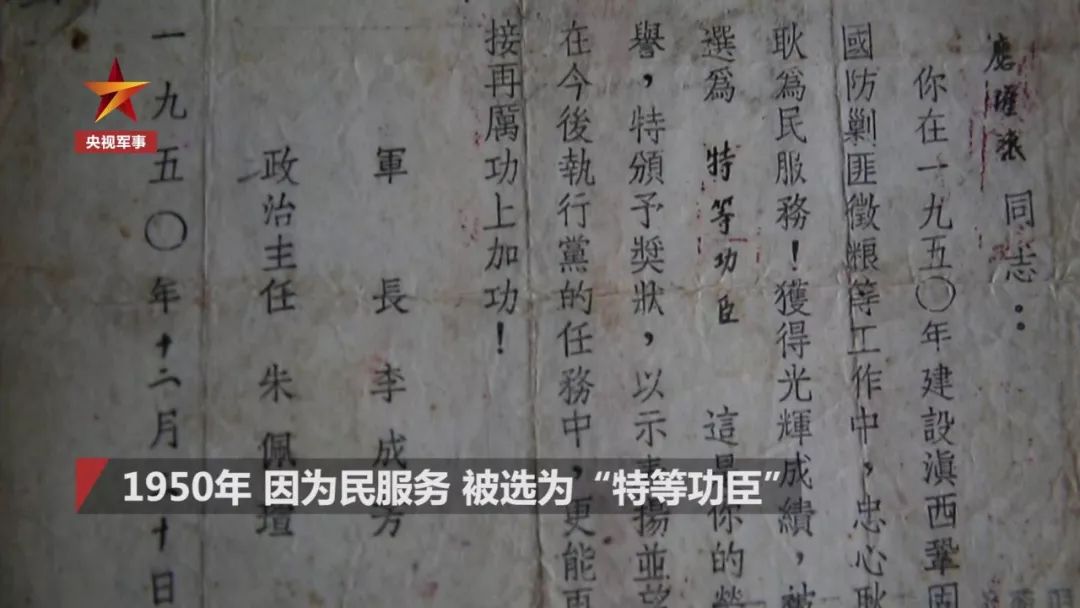 同志：
你在一九五〇年建設滇西鞏固
國防剿匪徵粮等工作中，忠心耿
耿為民服務！獲得光輝成績，被
選為 特等功臣 這是你的榮
譽，特頒予獎狀，以示表揚並望
在今後執行黨的任務中，更能再
接再厲功上加功！
軍長 李成芳
政治主任 朱佩瑄
一九五〇年十二月十日
央视军事
1950年 因为民服务 被选为“特等功臣”